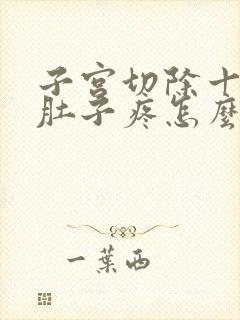 子宫切除十
肚子疼怎麼
一葉西